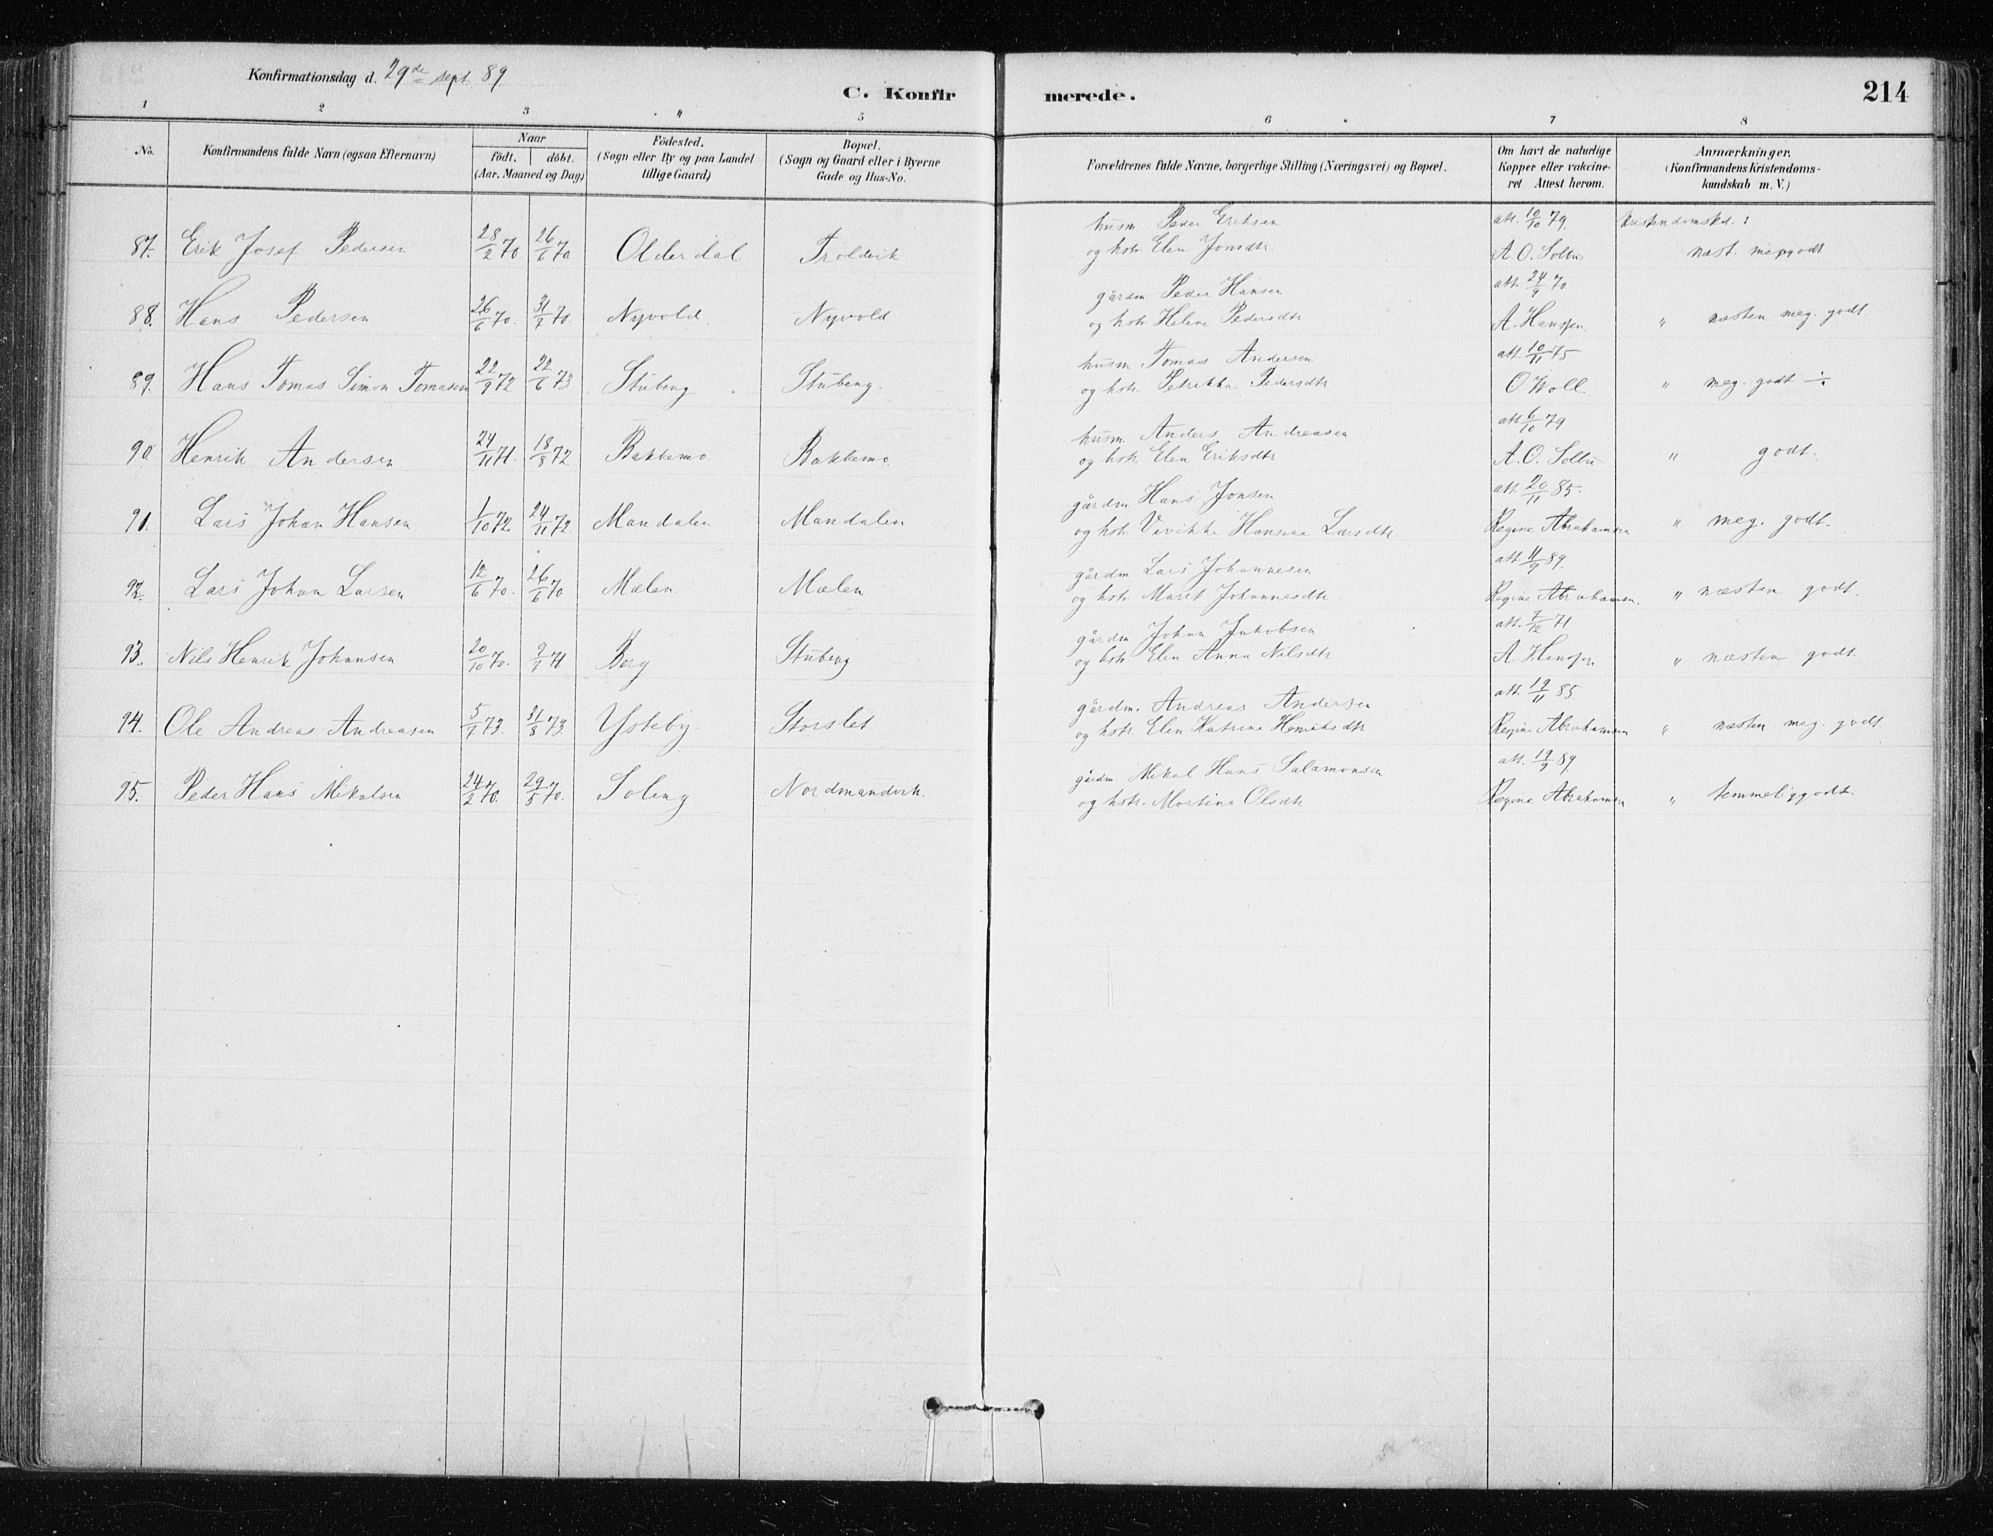 Konfirmationsdag d. 29de sept. 89
C. Konfirmerede.
214
1 2 3 4 5 6 7 8
No.
Konfirmandens fulde Navn (ogsaa Efternavn)
Naar
födt. döbt.
(Aar, Maaned og Dag)
Födested.
(Sogn eller By og paa Landet
tillige Gaard)
Bopæl.
(Sogn og Gaard eller i Byerne
Gade og Hus-No.
Forældrenes fulde Navne, borgerlige Stilling (Næringsvei) og Bopæl.
Om havt de naturlige
Kopper eller vakcine-
ret. Attest herom.
Anmærkninger.
(Konfirmandens Kristendoms-
kundskab m. V.)
87. Erik Josef Pedersen 28/2 70 26/6 70 Olderdal Troldvik husm. Peder Eriksen att. 10/10 79. kristendomskd. :
og hstr Elen Jonsdtr A. O. Soltu næst. megodt
88. Hans Pedersen 26/6 70. 31/7 70. Nyvold. Nyvold gårdm. Peder Hansen att. 24/9 70
og hstr. Helene Pedersdtr A. Hanssen " næsten meg. godt
89. Hans Tomas Simon Tomasen 22/9 72 22/6 73 Stubeng Stubeng. husm Tomas Andersen att. 10/11 75
og hstr. Petrikka Pedersdtr O Woll. " meg. godt ÷
90. Henrik Andersen 24/11 71. 18/8 72 Bakkemo Bakkemo husm. Anders Andreasen att. 6/10 79
og hstr Elen Eriksdtr A. O. Soltu " godt.
91. Lars Johan Hansen 1/10 72. 24/11 72 Mandalen Mandalen gårdm Hans Jonsen att. 20/11 85.
og hstr. Vivikke Hansine Larsdtr Regine Abrahamsen " meg. godt.
92. Lars Johan Larsen 12/6 70. 26/6 70 Mælen Mælen gårdm Lars Johannesen att 11/9 89.
og hstr. Marit Johannesdtr Regine Abrahamsen. " næsten godt.
93. Nils Henrik Johansen 20/10 70. 9/7 71 Berg Stubeng gårdm Johan Jakobsen att. 7/12 71
og hstr. Elen Anna Nilsdtr A Hanssen " næsten godt.
94. Ole Andreas Andreasen 5/7 73. 31/8 73 Ysteby. Storslet gårdm. Andreas Andersen att. 19/11 85
og hstr. Elen Katrine Henriksdtr Regine Abrahamsen " næsten meg. godt
95. Peder Hans Mikalsen 24/2 70. 29/5 70. Soleng Nordmandvik. gårdm Mikal Hans Salamonsen att. 19/9 89
og hstr. Martine Olsdtr Regine Abrahamsen " temmelig godt.